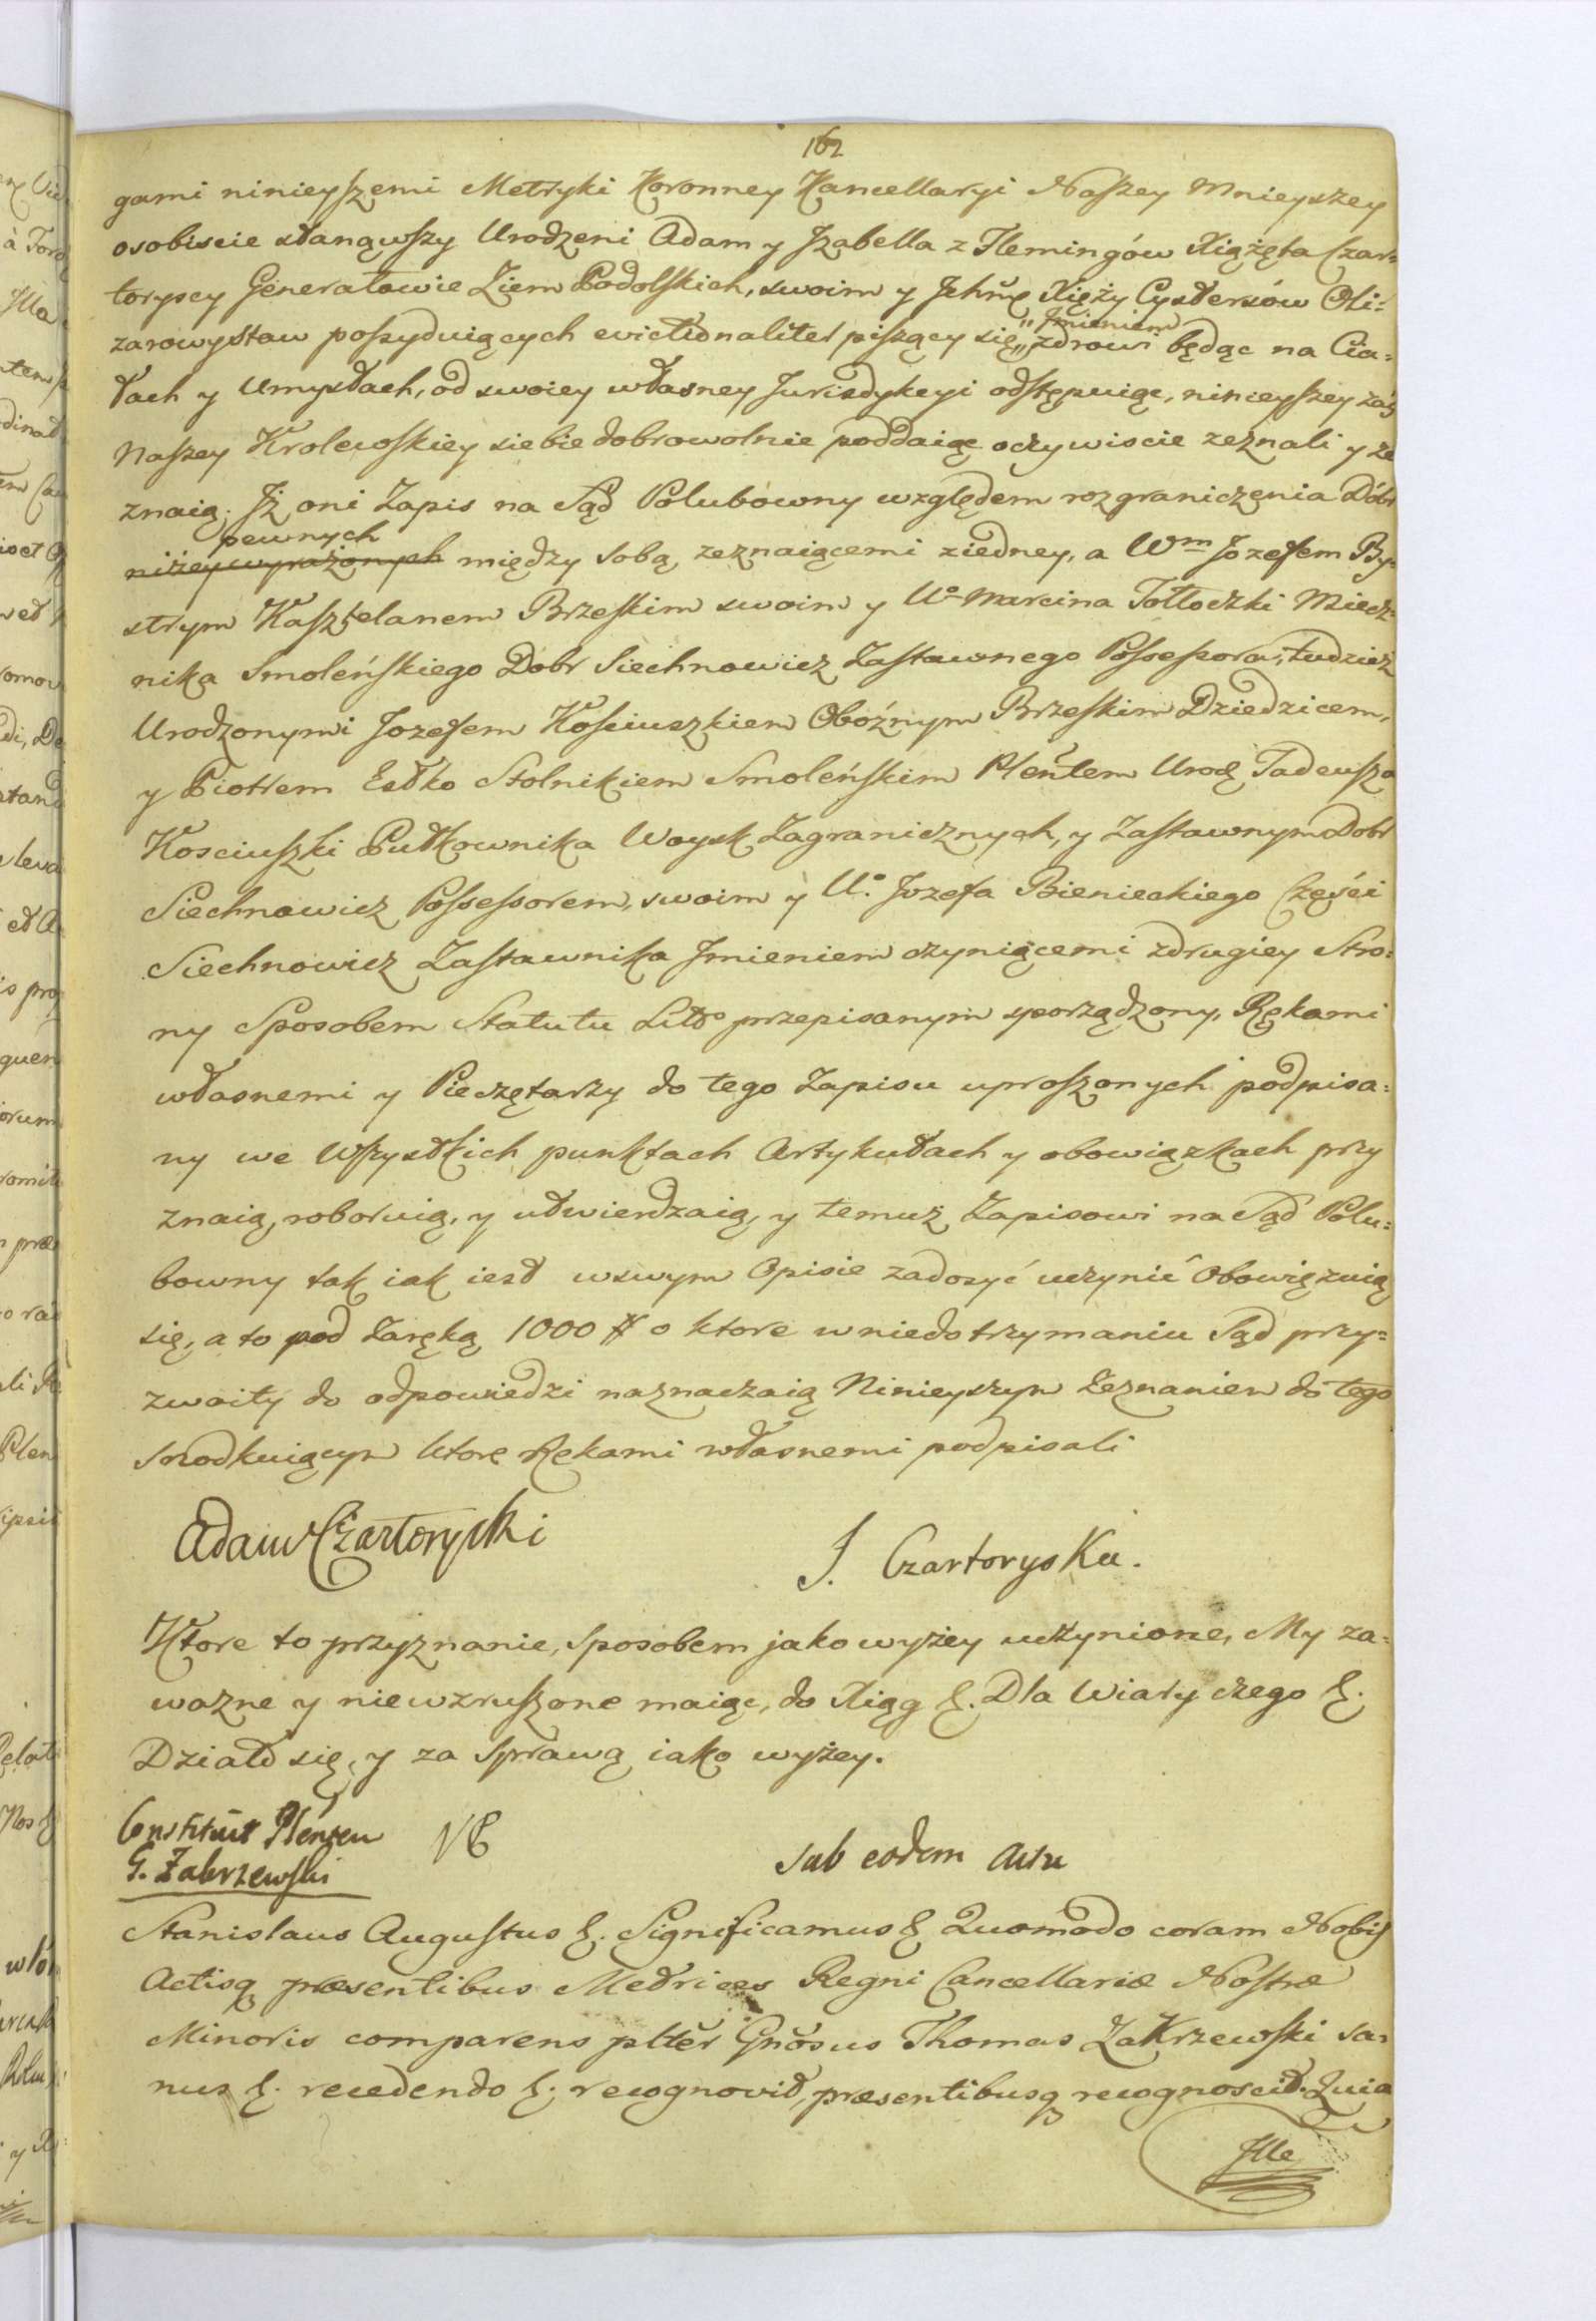 162
gami ninieyszemi Metryki Koronney Kancellaryi Naszey Mnieyszey
osobiscie stanąwszy Urodzeni Adam y Jzabella z Flemingów Xiążęta Czar=
toryscy Generałowie Ziem Podolskich, swoim y Jchm̃ę Xięży Cystersów Oli=
zarowystaw possyduiących evictionaliter piszący się „Jmieniem„ zdrowi będąc na Cia=
łach y Umysłach, od swoiey własney Jurisdykcyi odstępuiąc, ninieyszey zaś
Naszey Krolewskiey siebie dobrowolnie poddaiąc oczywiscie zeznali y ze
znaią. Jż oni Zapis na Sąd Polubowny względem rozgraniczenia Dóbr
pewnych
niżey wyrażonych między sobą zeznaiącemi ziedney, a Wm Jozefem By=
strym Kasztelanem Brzeskim swoim y Uo Marcina Tołłoczki Miecz=
nika Smoleńskiego Dobr Siechnowicz Zastawnego Possessora, tudzież
Urodzonymi Jozefem Kosciuszkiem Oboźnym Brzeskim Dziedzicem,
y Piotrem Estko Stolnikiem Smoleńskim Pleñtem Urodz Tadeusza
Kosciuszki Pułkownika Woysk Zagranicznych, y Zastawnym Dobr
Siechnowicz Possessorem, swoim y Uo Jozefa Bienieckiego Częsci
Siechnowicz Zastawnika Jmieniem czyniącemi zdrugiey Stro=
ny Sposobem Statutu Litto przepisanym sporządzony, Rękami
własnemi y Pieczętarzy do tego Zapisu uproszonych podpisa=
ny we Wszystkich punktach Artykułach y obowiązkach przy
znaią, roboruią, y utwierdzaią, y temuż Zapisowi na Sąd Polu=
bowny tak iak iest wswym Opisie zadosyć uczynić Obowięzuią
się, a to pod Zaręką 1000 # o ktore wniedotrzymaniu Sąd przy=
zwoity do odpowiedzi naznaczaią Ninieyszym Zeznaniem do tego
srzodkuiącym ktore Rękami własnemi podpisali
Adam Czartoryski
J. Czartoryska.
Ktore to przyznanie, Sposobem jako wyżey uczynione, My za=
wazne y niewzruszone maiąc, do Xiąg &. Dla Wiary czego &.
Działo się, y za Sprawą iako wyżey.
Constituit Pleñtem
G. Zakrzewski
sub eodem Actu
Stanislaus Augustus &. Significamus & Quomodo coram Nobis
Actisq, præsentibus Metrices Regni Cancellariæ Nostræ
Minoris comparens plt̃er Gñosus Thomas Zakrzewski sa=
nus &. recedendo &. recognovit, præsentibusq recognoscit. Quia
Jlle